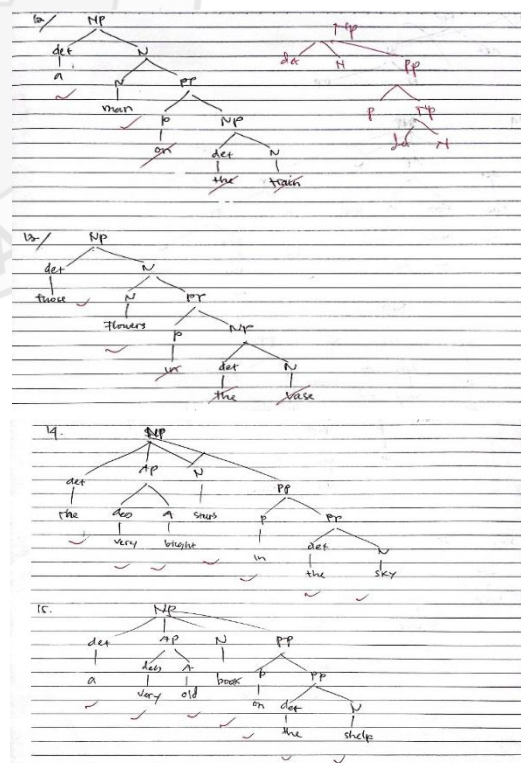 12/ NP
NP
det N
det N PP
a
N PP
man
P NP
P NP
det N
on
det N
the train
13/ NP
det N
those
N PP
flowers
P NP
in
det N
the vase
14. NP
det AP N PP
the deg A stars P PP
very bright in det N
the sky
15. NP
det AP N PP
a deg A book P PP
very old on det N
the shelp